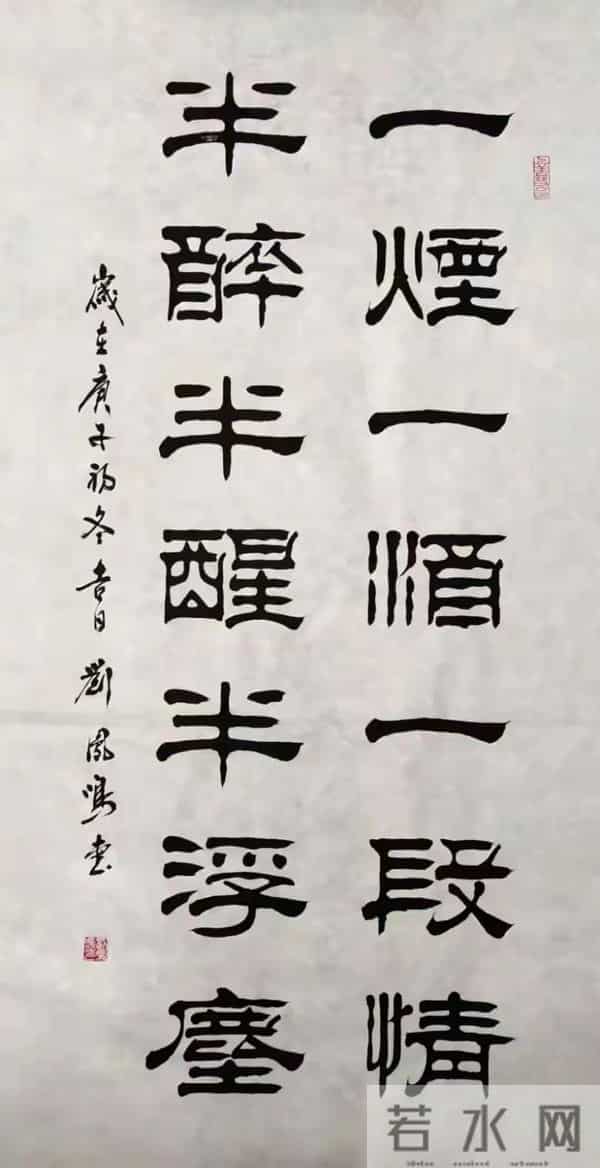 一煙一酒一段情
半醉半醒半浮塵
歲在庚子初冬吉日劉鳳鳴書
若水网